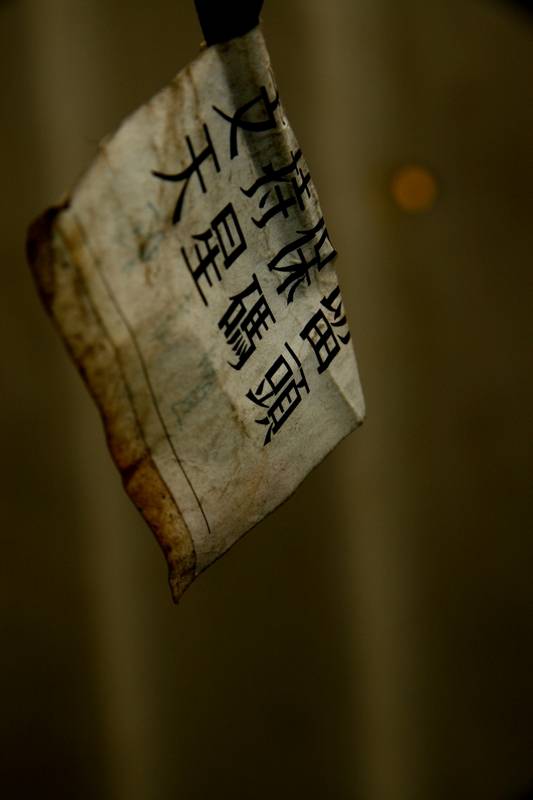 支持保留
天星碼頭